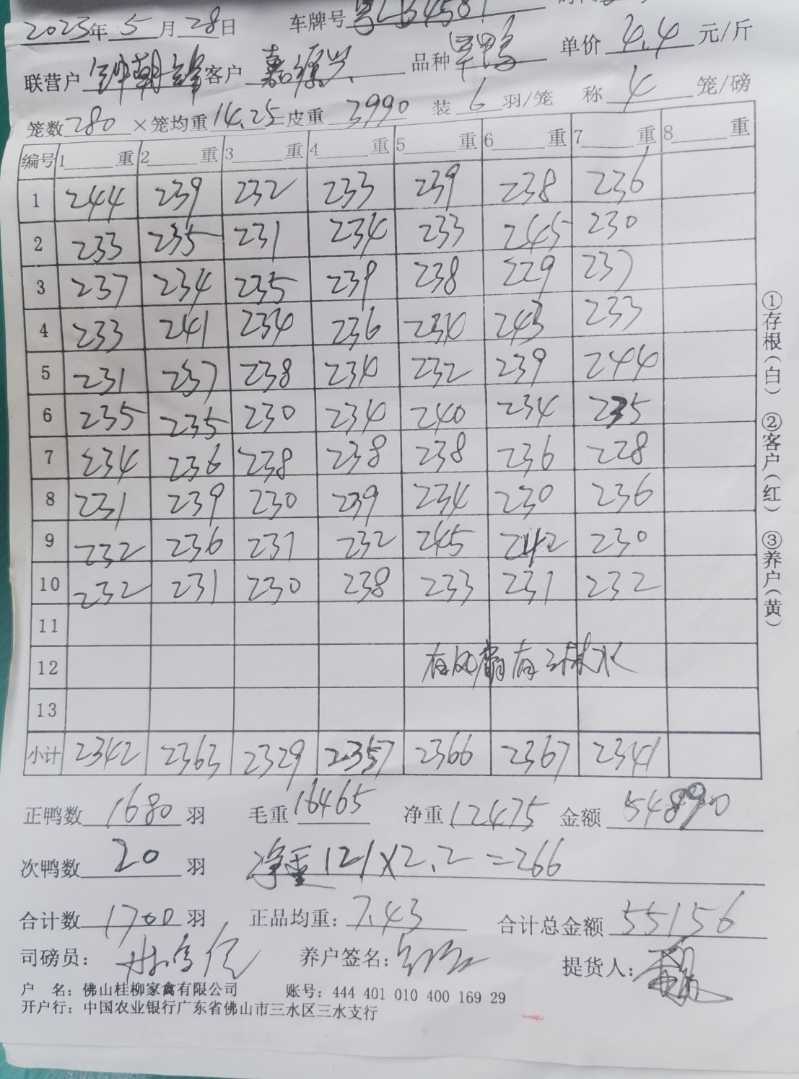 2023年5月28日 车牌号
联营户 钟朝锋 客户 嘉振兴 品种 旱鸭 单价 4.4 元/斤
笼数 280 ×笼均重 14.25 =皮重 3990 装 6 羽/笼 称 4 笼/磅
编号 1 重 2 重 3 重 4 重 5 重 6 重 7 重 8 重
1 244 239 232 233 239 238 236
2 233 235 231 234 233 245 230
3 237 234 235 239 238 229 237
4 233 241 234 236 234 243 233
5 231 237 238 234 232 239 244
6 235 235 230 234 240 234 235
7 234 236 238 238 238 236 228
8 231 239 230 239 234 230 236
9 232 236 231 232 245 242 230
10 232 231 230 238 233 231 232
11
12 有风扇有 水
13
小计 2342 2363 2329 2357 2366 2367 2341
正鸭数 1680 羽 毛重 16465 净重 12475 金额 54890
次鸭数 20 羽 净重 121×2.2=266
合计数 1700 羽 正品均重: 7.43 合计总金额 55156
司磅员: 养户签名: 提货人:
户 名: 佛山桂柳家禽有限公司 账号: 444 401 010 400 169 29
开户行: 中国农业银行广东省佛山市三水区三水支行
①存根(白) ②客户(红) ③养户(黄)